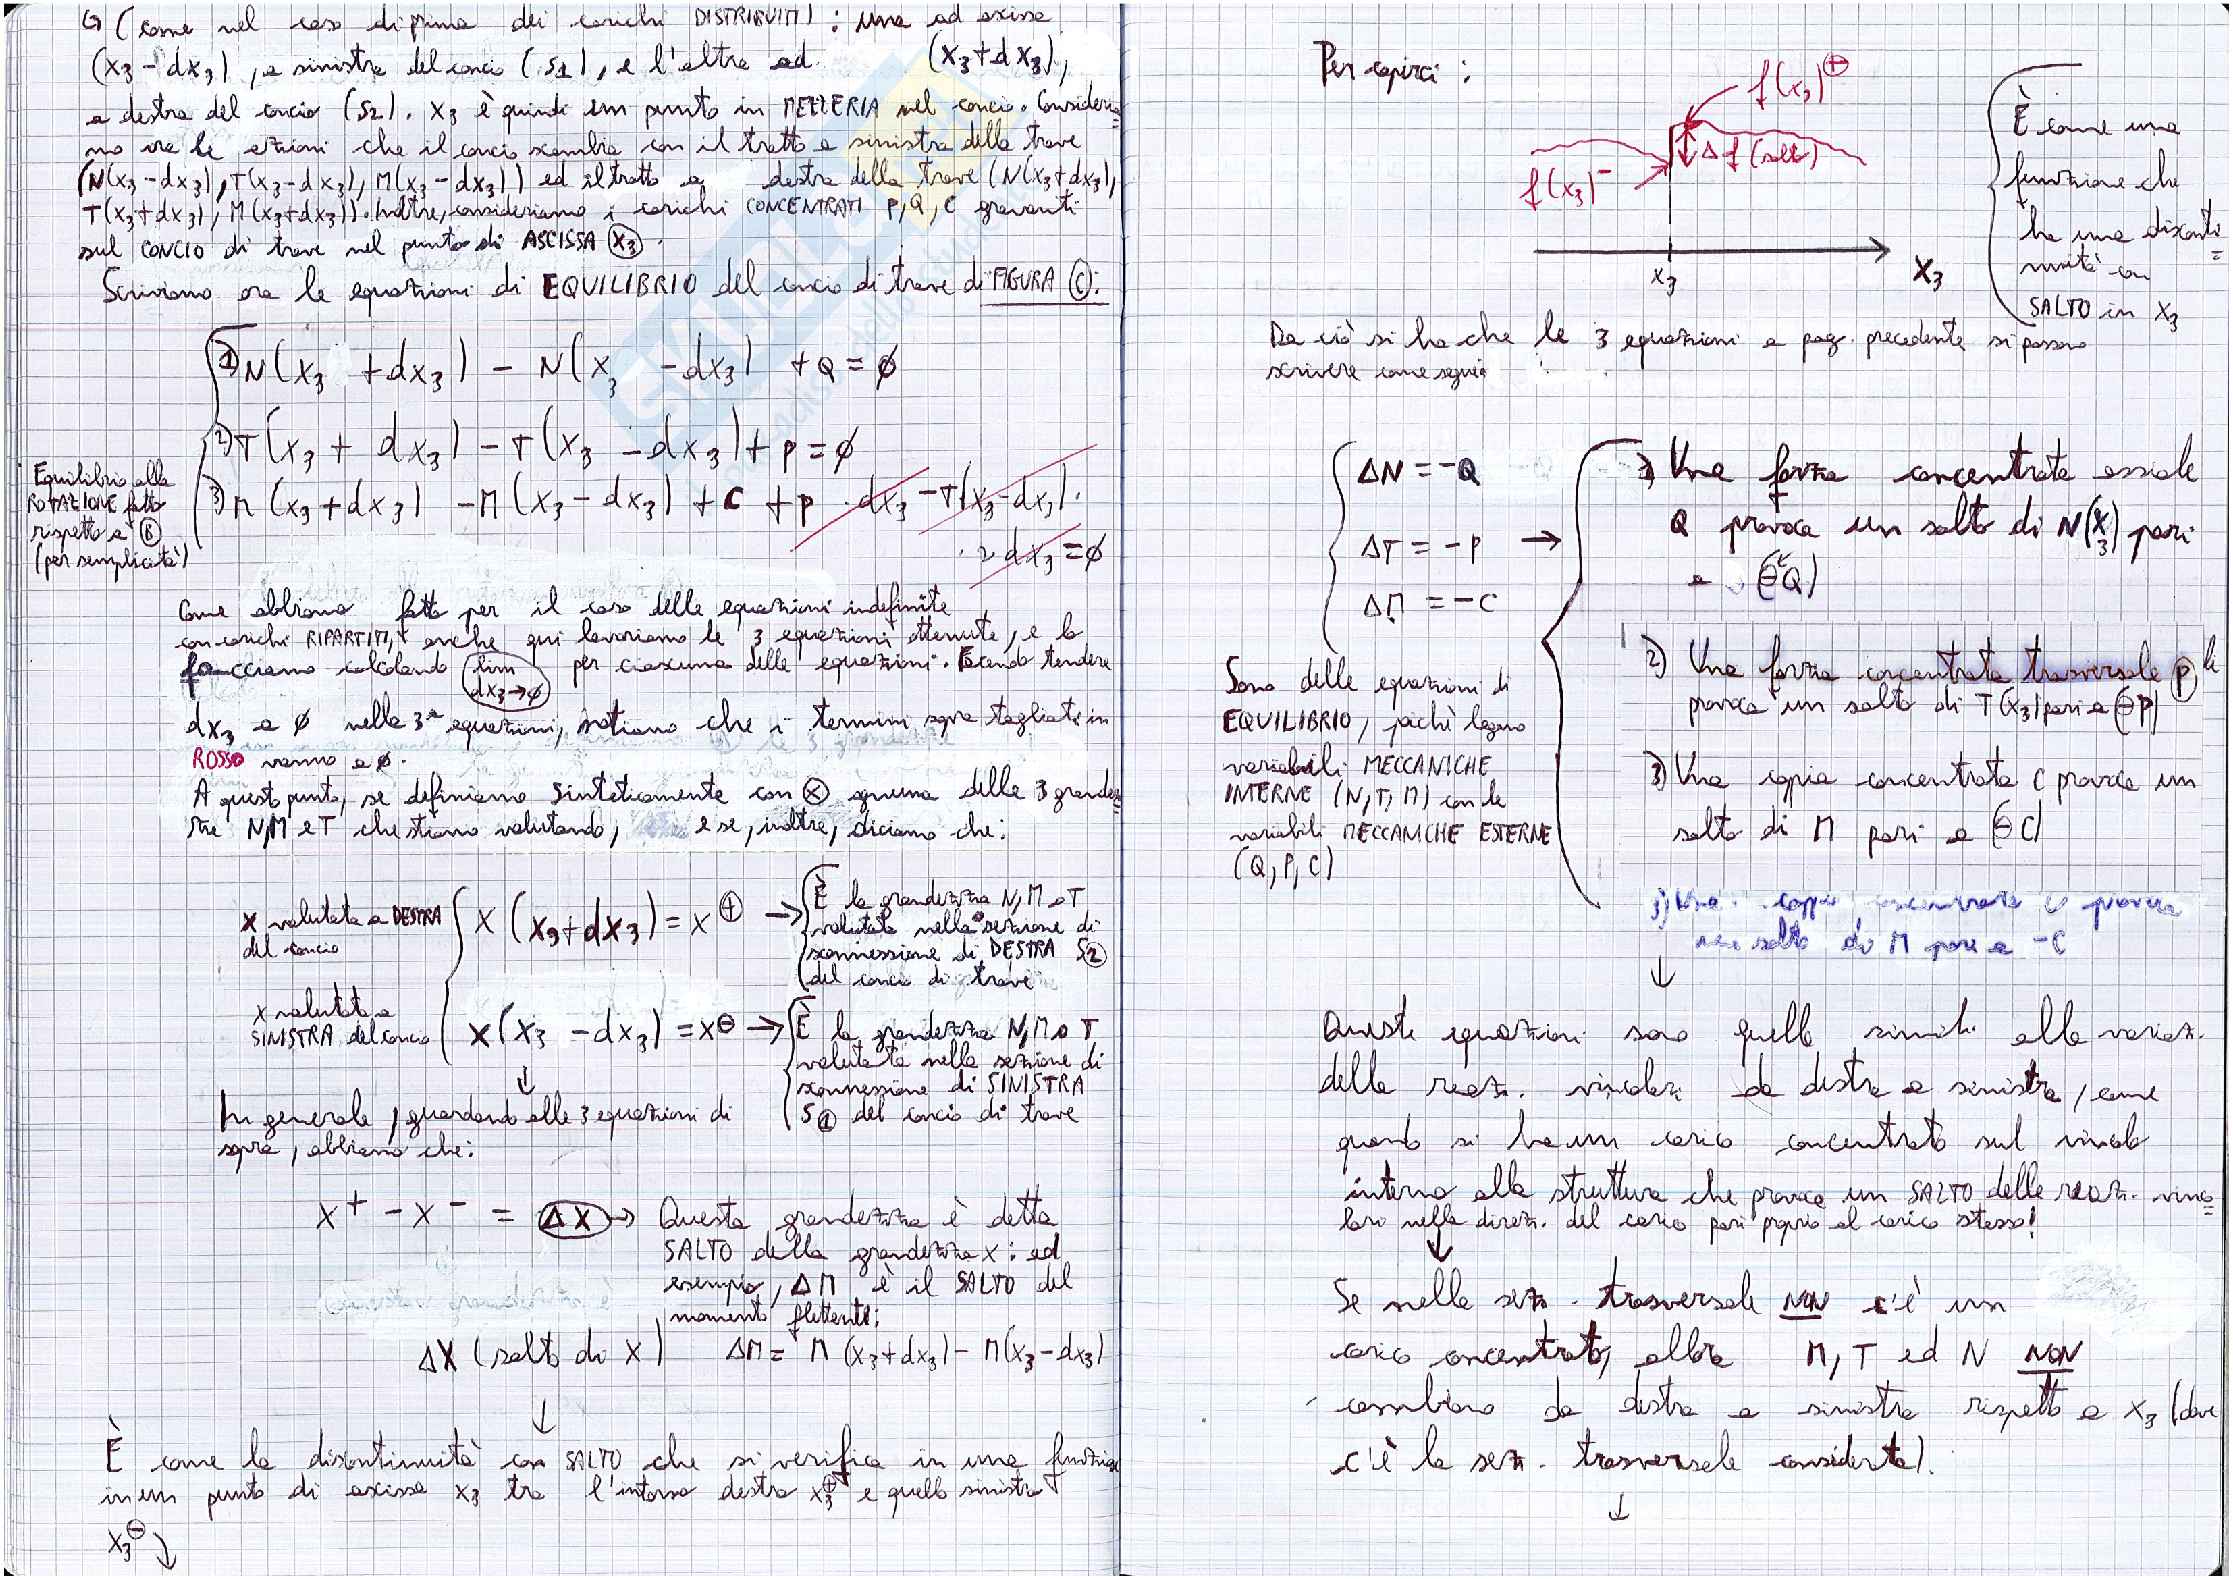 ↳ (come nel caso di prima dei carichi DISTRIBUITI): una ad ascissa
(x₃ - dx₃), a sinistra del concio (S1), e l'altra ad (x₃+dx₃),
a destra del concio (S2). x₃ è quindi un punto in MEZZERIA nel concio. Consideria=
mo ora le azioni che il concio scambia con il tratto a sinistra della trave
(N(x₃-dx₃), T(x₃-dx₃), M(x₃-dx₃)) ed il tratto a destra della trave (N(x₃+dx₃),
T(x₃+dx₃), M(x₃+dx₃)). Inoltre, consideriamo i carichi CONCENTRATI P, Q, C gravanti
sul CONCIO di trave nel punto di ASCISSA (x₃).
Scriviamo ora le equazioni di EQUILIBRIO del concio di trave di FIGURA (C):
1) N(x₃ + dx₃) - N(x₃ - dx₃) + Q = ∅
2) T(x₃ + dx₃) - T(x₃ - dx₃) + P = ∅
3) M(x₃+dx₃) - M(x₃ - dx₃) + C + P · dx₃ - T(x₃-dx₃) ·
· 2 dx₃ = ∅
Equilibrio alla
ROTAZIONE fatto
rispetto a (B)
(per semplicità)
Come abbiamo fatto per il caso delle equazioni indefinite
con carichi RIPARTITI, anche qui lavoriamo le 3 equazioni ottenute, e lo
facciamo calcolando lim dx₃→∅ per ciascuna delle equazioni. Facendo tendere
dx₃ a ∅ nella 3ª equazioni, notiamo che i termini sopra tagliati in
ROSSO vanno a ∅.
A questo punto, se definiamo sinteticamente con (X) ognuna delle 3 grandez=
ze N, M e T che stiamo valutando, e se, inoltre, diciamo che:
X valutata a DESTRA
del concio
X (x₃+dx₃) = X⊕ →
È la grandezza N, M o T
valutata nella sezione di
sconnessione di DESTRA S2
del concio di trave
X valutata a
SINISTRA del concio
X(x₃ - dx₃) = X⊖ →
È la grandezza N, M o T
valutata nella sezione di
sconnessione di SINISTRA
S1 del concio di trave
↓
In generale, guardando alle 3 equazioni di
sopra, abbiamo che:
X⁺ - X⁻ = ΔX → Questa grandezza è detta
SALTO della grandezza X: ad
esempio, ΔM è il SALTO del
momento flettente:
ΔX (salto di X) ΔM = M (x₃+dx₃) - M(x₃-dx₃)
↓
È come la discontinuità con SALTO che si verifica in una funzione
in un punto di ascissa x₃ tra l'intorno destro x₃⊕ e quello sinistro
x₃⊖
Per capirci:
f(x₃)⊕
Δf (salto)
f(x₃)⁻
x₃
x₃
È come una
funzione che
ha una disconti=
nuità con
SALTO in x₃
Da ciò si ha che le 3 equazioni a pag. precedente si possono
scrivere come segue:
ΔN = -Q
ΔT = -P →
ΔM = -C
1) Una forza concentrata assiale
Q provoca un salto di N(x₃) pari
a (⊖Q)
2) Una forza concentrata trasversale (P)
provoca un salto di T(x₃) pari a (⊖P)
3) Una copia concentrata C provoca un
salto di M pari a (⊖C)
3) Una coppia concentrata C provoca
un salto di M pari a -C
Sono delle equazioni di
EQUILIBRIO, poichè legano
variabili MECCANICHE
INTERNE (N, T, M) con le
variabili MECCANICHE ESTERNE
(Q, P, C)
↓
Queste equazioni sono quelle simili alla variaz.
delle reaz. vincolari da destra a sinistra, come
quando si ha un carico concentrato sul vincolo
interno alla struttura che provoca un SALTO delle reaz. vinco=
lari nella direz. del carico pari proprio al carico stesso!
↓
Se nella sez. trasversale NON c'è un
carico concentrato, allora M, T ed N NON
cambiano da destra a sinistra rispetto a x₃ (dove
c'è la sez. trasversale considerata).
↓